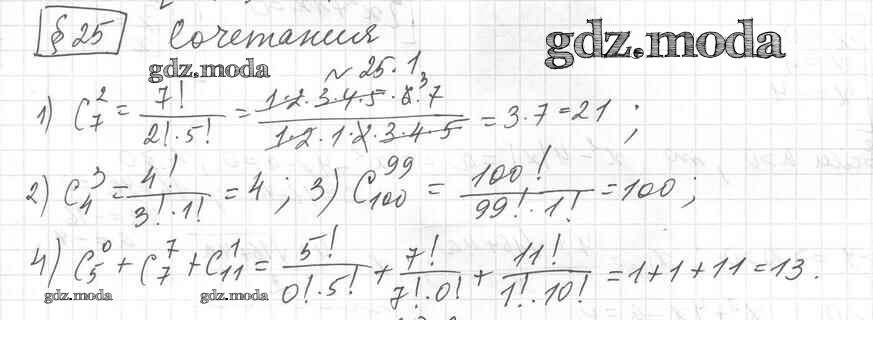 § 25 Сочетания gdz.moda
gdz.moda № 25.1
1) C₇² = 7! / (2!·5!) = (1·2·3·4·5·6³·7) / (1·2·1·2·3·4·5) = 3·7 = 21 ;
2) C₄³ = 4! / (3!·1!) = 4 ; 3) C₁₀₀⁹⁹ = 100! / (99!·1!) = 100 ;
4) C₅⁰ + C₇⁷ + C₁₁¹ = 5! / (0!·5!) + 7! / (7!·0!) + 11! / (1!·10!) = 1+1+11 = 13.
gdz.moda gdz.moda